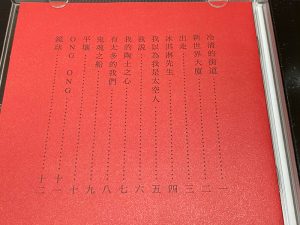 冷清的街道……一
新世界大廈……二
出走……三
冰淇淋先生……四
我以為我是太空人……五
我說……六
我的陶土之心……七
有太多的我們……八
鬼魂之船……九
平壤……十
ONG ONG……十一
……十二